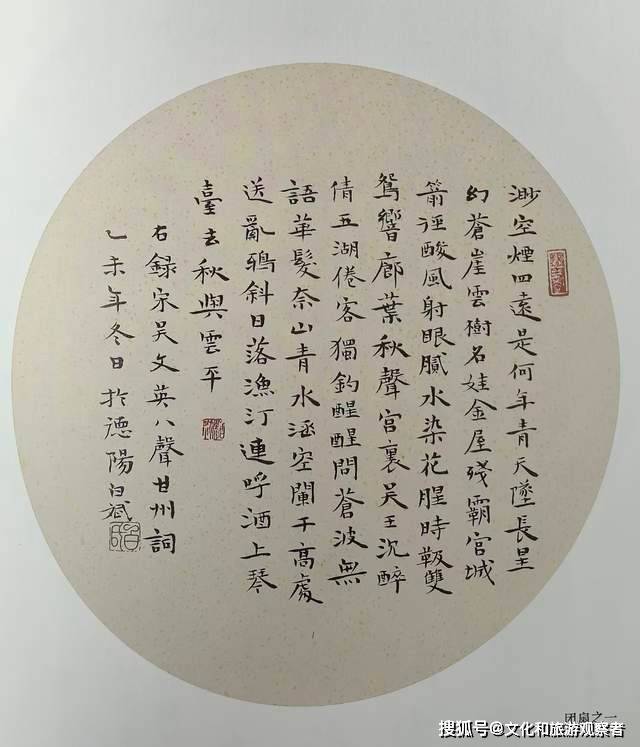 渺空煙四遠是何年青天墜長星
幻蒼崖雲樹名娃金屋殘霸宮城
箭徑酸風射眼膩水染花腥時靸雙
鴛響廊葉秋聲宮裏吳王沉醉
倩五湖倦客獨釣醒醒問蒼波無
語華髮奈山青水涵空闌干高處
送亂鴉斜日落漁汀連呼酒上琴
臺去秋與雲平
右録宋吳文英八聲甘州詞
乙未年冬日於德陽白斌
团扇之一
搜狐号@文化和旅游观察者